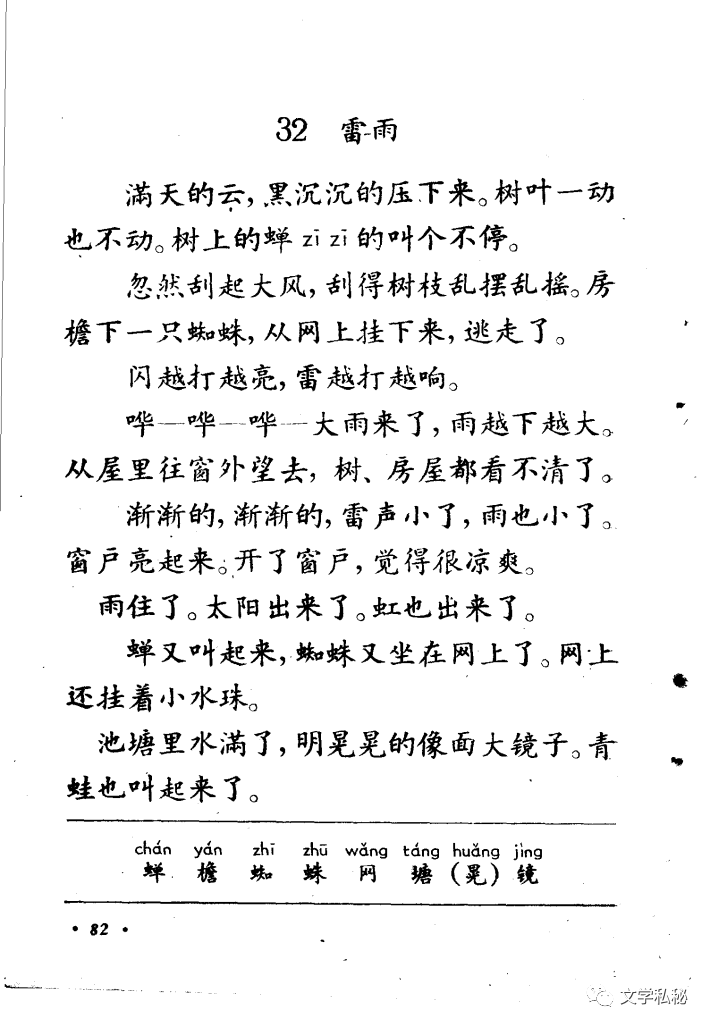 32 雷雨
滿天的云，黑沉沉的压下来。树叶一动
也不动。树上的蝉 zī zī 的叫个不停。
忽然刮起大风，刮得树枝乱摆乱摇。房
檐下一只蜘蛛，从网上挂下来，逃走了。
闪越打越亮，雷越打越响。
哗—哗—哗—大雨来了，雨越下越大。
从屋里往窗外望去，树、房屋都看不清了。
渐渐的，渐渐的，雷声小了，雨也小了。
窗户亮起来。开了窗户，觉得很凉爽。
雨住了。太阳出来了。虹也出来了。
蝉又叫起来，蜘蛛又坐在网上了。网上
还挂着小水珠。
池塘里水滿了，明晃晃的像面大镜子。青
蛙也叫起来了。
chán yán zhī zhū wǎng táng huǎng jìng
蝉 檐 蜘 蛛 网 塘 (晃) 镜
• 82 •
文学私秘